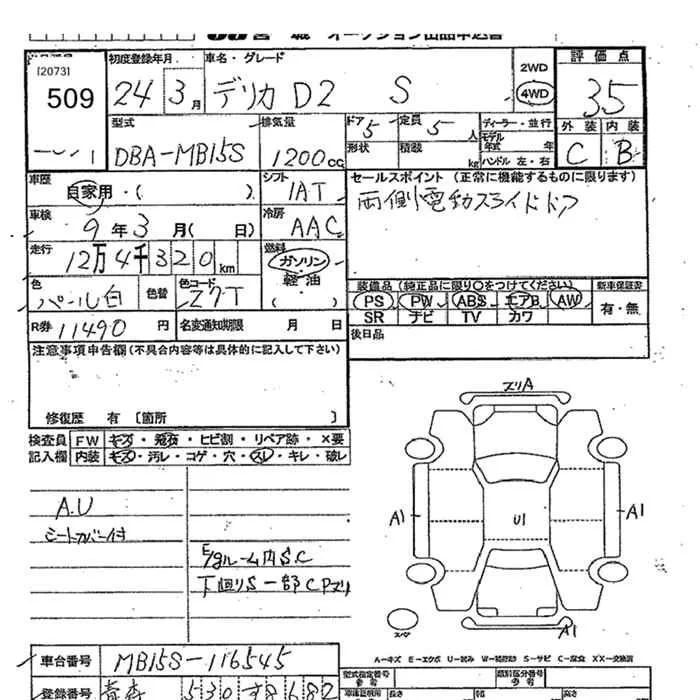 宮城 オークション出品申込書
[2073]
509
初度登録年月
24 3月
車名・グレード
デリカD2 S
2WD
4WD
評価点
3.5
外装 内装
C B
型式
DBA-MB15S
排気量
1200cc
ドア 5
定員 5人
形状
積装 kg
ディーラー・並行
モデル年式 年
ハンドル 左・右
車歴
自家用・( )
シフト
1AT
セールスポイント (正常に機能するものに限ります)
両側電動スライドドア
車検
9年3月( 日)
冷房
AAC
走行
12万4千320km
燃料
ガソリン
軽油
( )
色
パール白
色替
色コード
Z7T
装備品 (純正品に限り○をつけてください)
新車保証書
PS PW ABS エアB AW
SR ナビ TV カワ
有・無
R券 11490円
名変通知期限 月 日
後日品
注意事項申告欄(不具合内容等は具体的に記入して下さい)
修復歴 有 〔箇所 〕
検査員記入欄
FW キズ・飛石・ヒビ割・リペア跡・×要
内装 キズ・汚レ・コゲ・穴・スレ・キレ・破レ
A.U
シートカバー付
E/gルーム内S.C
下廻りS 一部CPズリ
ズリA
A1
U1
A1
A1
スペア
A-キズ E-エクボ U-凹み W-補修跡 S-サビ C-腐食 XX-交換済
車台番号
MB15S-116545
登録番号
青森 530 す8682
型式指定番号
類別区分番号
長さ